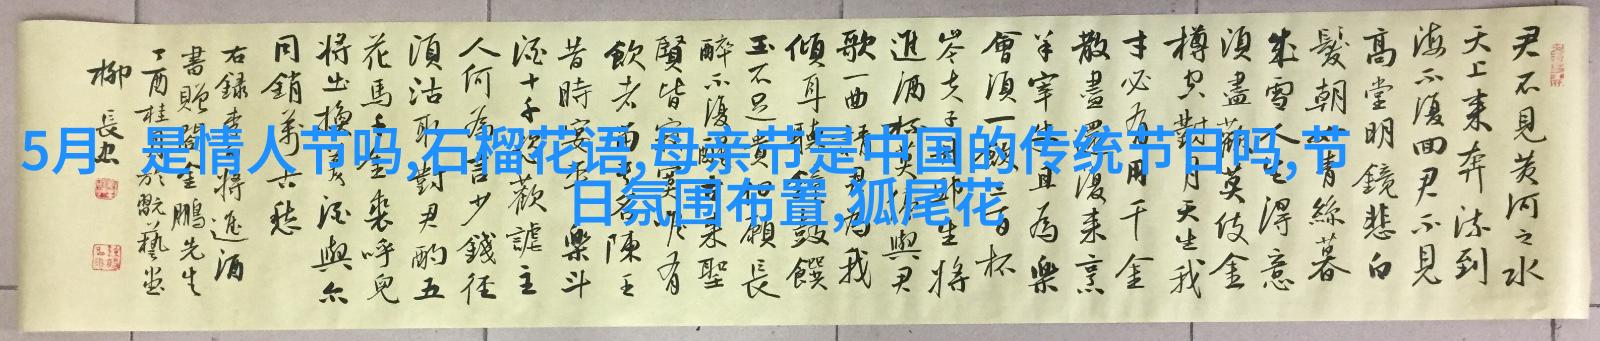 5月 是情人节吗,石榴花语,母亲节是中国的传统节日吗,节
日氛围布置,狐尾花
君不見黃河之水
天上來奔流到
海不復回君不見
高堂明鏡悲白
髮朝如青絲暮
成雪人生得意
須盡歡莫使金
樽空對月天生我
才必有用千金
散盡還復來烹
羊宰牛且為樂
會須一飲三百杯
岑夫子丹邱生將
進酒杯莫停與君
歌一曲請君為我
傾耳聽鐘鼓饌
玉不足貴但願長
醉不復醒古來聖
賢皆寂寞唯有
飲者留其名陳王
昔時宴平樂斗
酒十千恣歡謔主
人何為言少錢徑
須沽取對君酌五
花馬千金裘呼兒
將出換美酒與尔
同銷萬古愁
右錄李白將進酒
書贈金鵬先生
丁酉桂月於翫藝堂
柳長忠